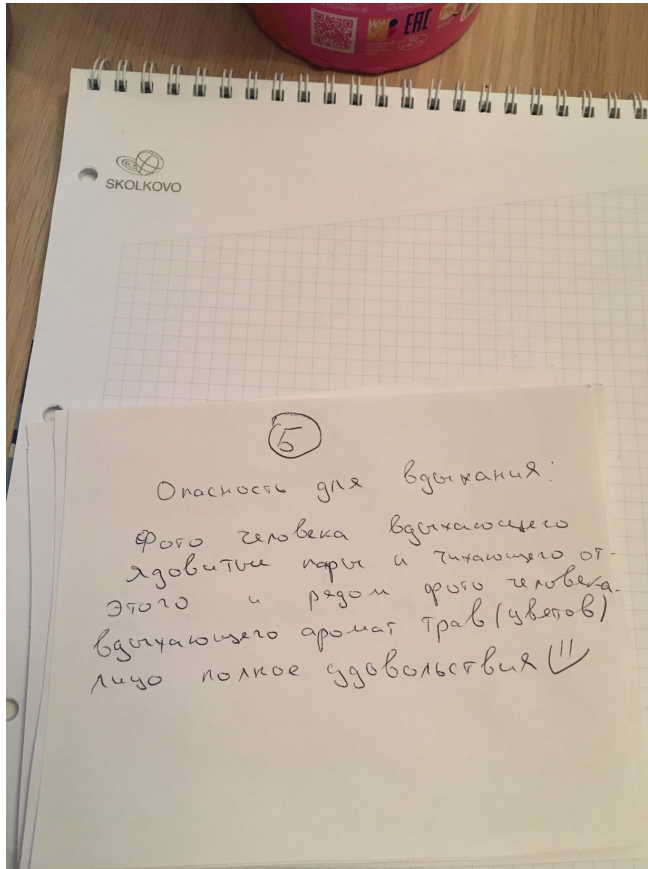 EAC
SKOLKOVO
5
Опасность для вдыхания:
Фото человека вдыхающего
ядовитые пары и чихающего от
этого и рядом фото человека
вдыхающего аромат трав (цветов)
лицо полное удовольствия